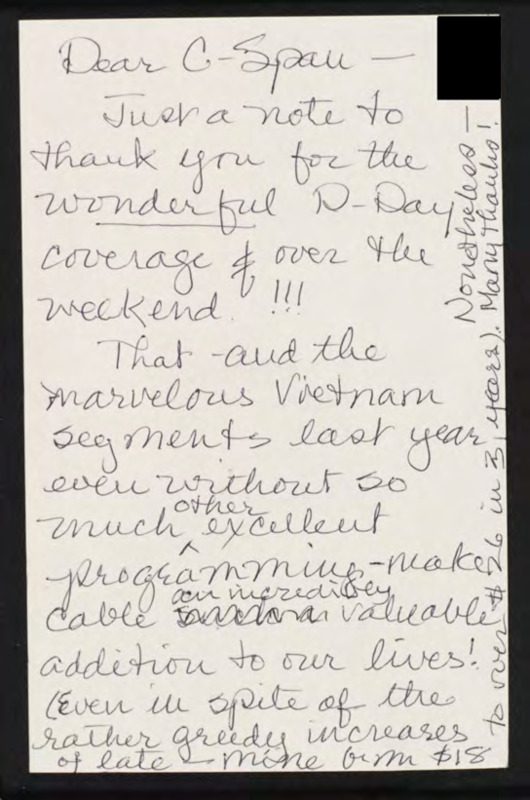 Dear C-Span —
Just a note to
thank you for the
wonderful D-Day
coverage & over the
weekend. !!!
That - and the
marvelous Vietnam
segments last year
even without so
much other excellent
programming - make
cable an incredibly valuable
addition to our lives!
(Even in spite of the
rather greedy increases
of late — mine from $18
to over $26 in 3 years). Many thanks!
Nonetheless —